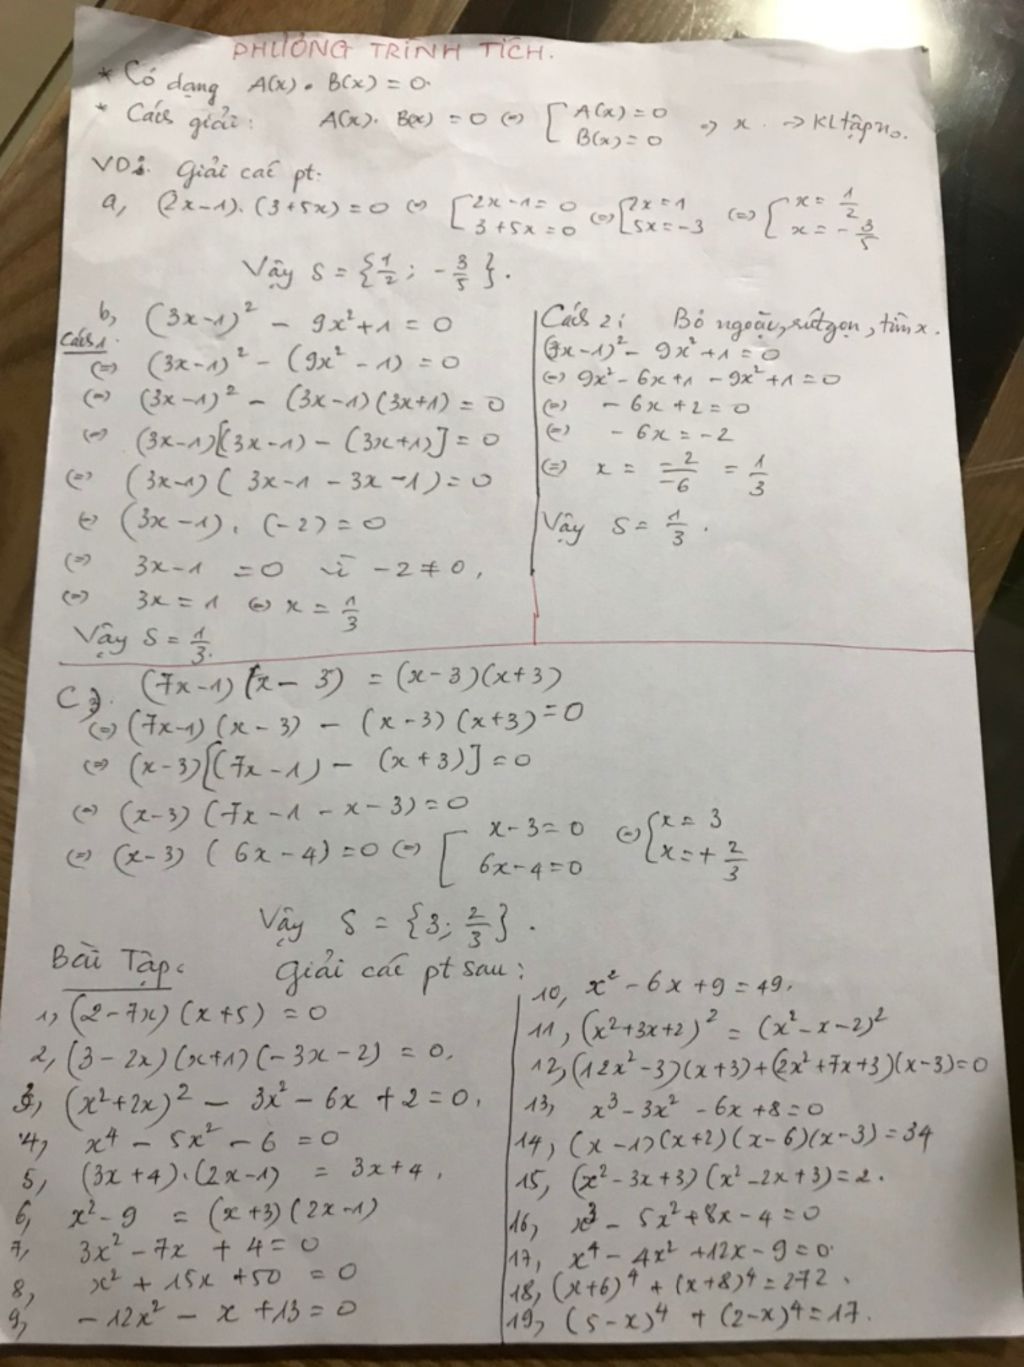 PHƯƠNG TRÌNH TÍCH.
* Có dạng A(x) . B(x) = 0.
* Cách giải: A(x). B(x) = 0 (=) [ A(x) = 0 B(x) = 0 => x. -> KL tập no.
VD: Giải các pt:
a, (2x-1). (3+5x) = 0 (=) [ 2x-1 = 0 3+5x = 0 (=) [ 2x = 1 5x = -3 (=) [ x = 1/2 x = -3/5
Vậy S = {1/2; -3/5}.
b, (3x-1)² - 9x² + 1 = 0
Cách 1.
(=) (3x-1)² - (9x² - 1) = 0
(=) (3x-1)² - (3x-1)(3x+1) = 0
(=) (3x-1)[(3x-1) - (3x+1)] = 0
(=) (3x-1)( 3x-1 - 3x -1) = 0
(=) (3x-1). (-2) = 0
(=) 3x-1 = 0 vì -2 ≠ 0.
(=) 3x = 1 (=) x = 1/3
Vậy S = 1/3.
Cách 2: Bỏ ngoặc, rút gọn, tìm x.
(3x-1)² - 9x² + 1 = 0
(=) 9x² - 6x + 1 - 9x² + 1 = 0
(=) - 6x + 2 = 0
(=) - 6x = -2
(=) x = -2/-6 = 1/3
Vậy S = 1/3.
C, (7x-1)(x-3) = (x-3)(x+3)
(=) (7x-1)(x-3) - (x-3)(x+3) = 0
(=) (x-3)[(7x-1) - (x+3)] = 0
(=) (x-3)(7x-1-x-3) = 0
(=) (x-3)(6x-4) = 0 (=) [ x-3 = 0 6x-4 = 0 (=) [ x = 3 x = + 2/3
Vậy S = {3; 2/3}.
Bài Tập: Giải các pt sau:
1, (2-7x)(x+5) = 0
2, (3-2x)(x+1)(-3x-2) = 0.
3, (x²+2x)² - 3x² - 6x + 2 = 0.
4, x⁴ - 5x² - 6 = 0
5, (3x+4).(2x-1) = 3x+4.
6, x² - 9 = (x+3)(2x-1)
7, 3x² - 7x + 4 = 0
8, x² + 15x + 50 = 0
9, -12x² - x + 13 = 0
10, x² - 6x + 9 = 49.
11, (x²+3x+2)² = (x²-x-2)²
12, (12x²-3)(x+3)+(2x²+7x+3)(x-3)=0
13, x³ - 3x² - 6x + 8 = 0
14, (x-1)(x+2)(x-6)(x-3) = 34
15, (x²-3x+3)(x²-2x+3) = 2.
16, x³ - 5x² + 8x - 4 = 0
17, x⁴ - 4x² + 12x - 9 = 0.
18, (x+6)⁴ + (x+8)⁴ = 272.
19, (5-x)⁴ + (2-x)⁴ = 17.